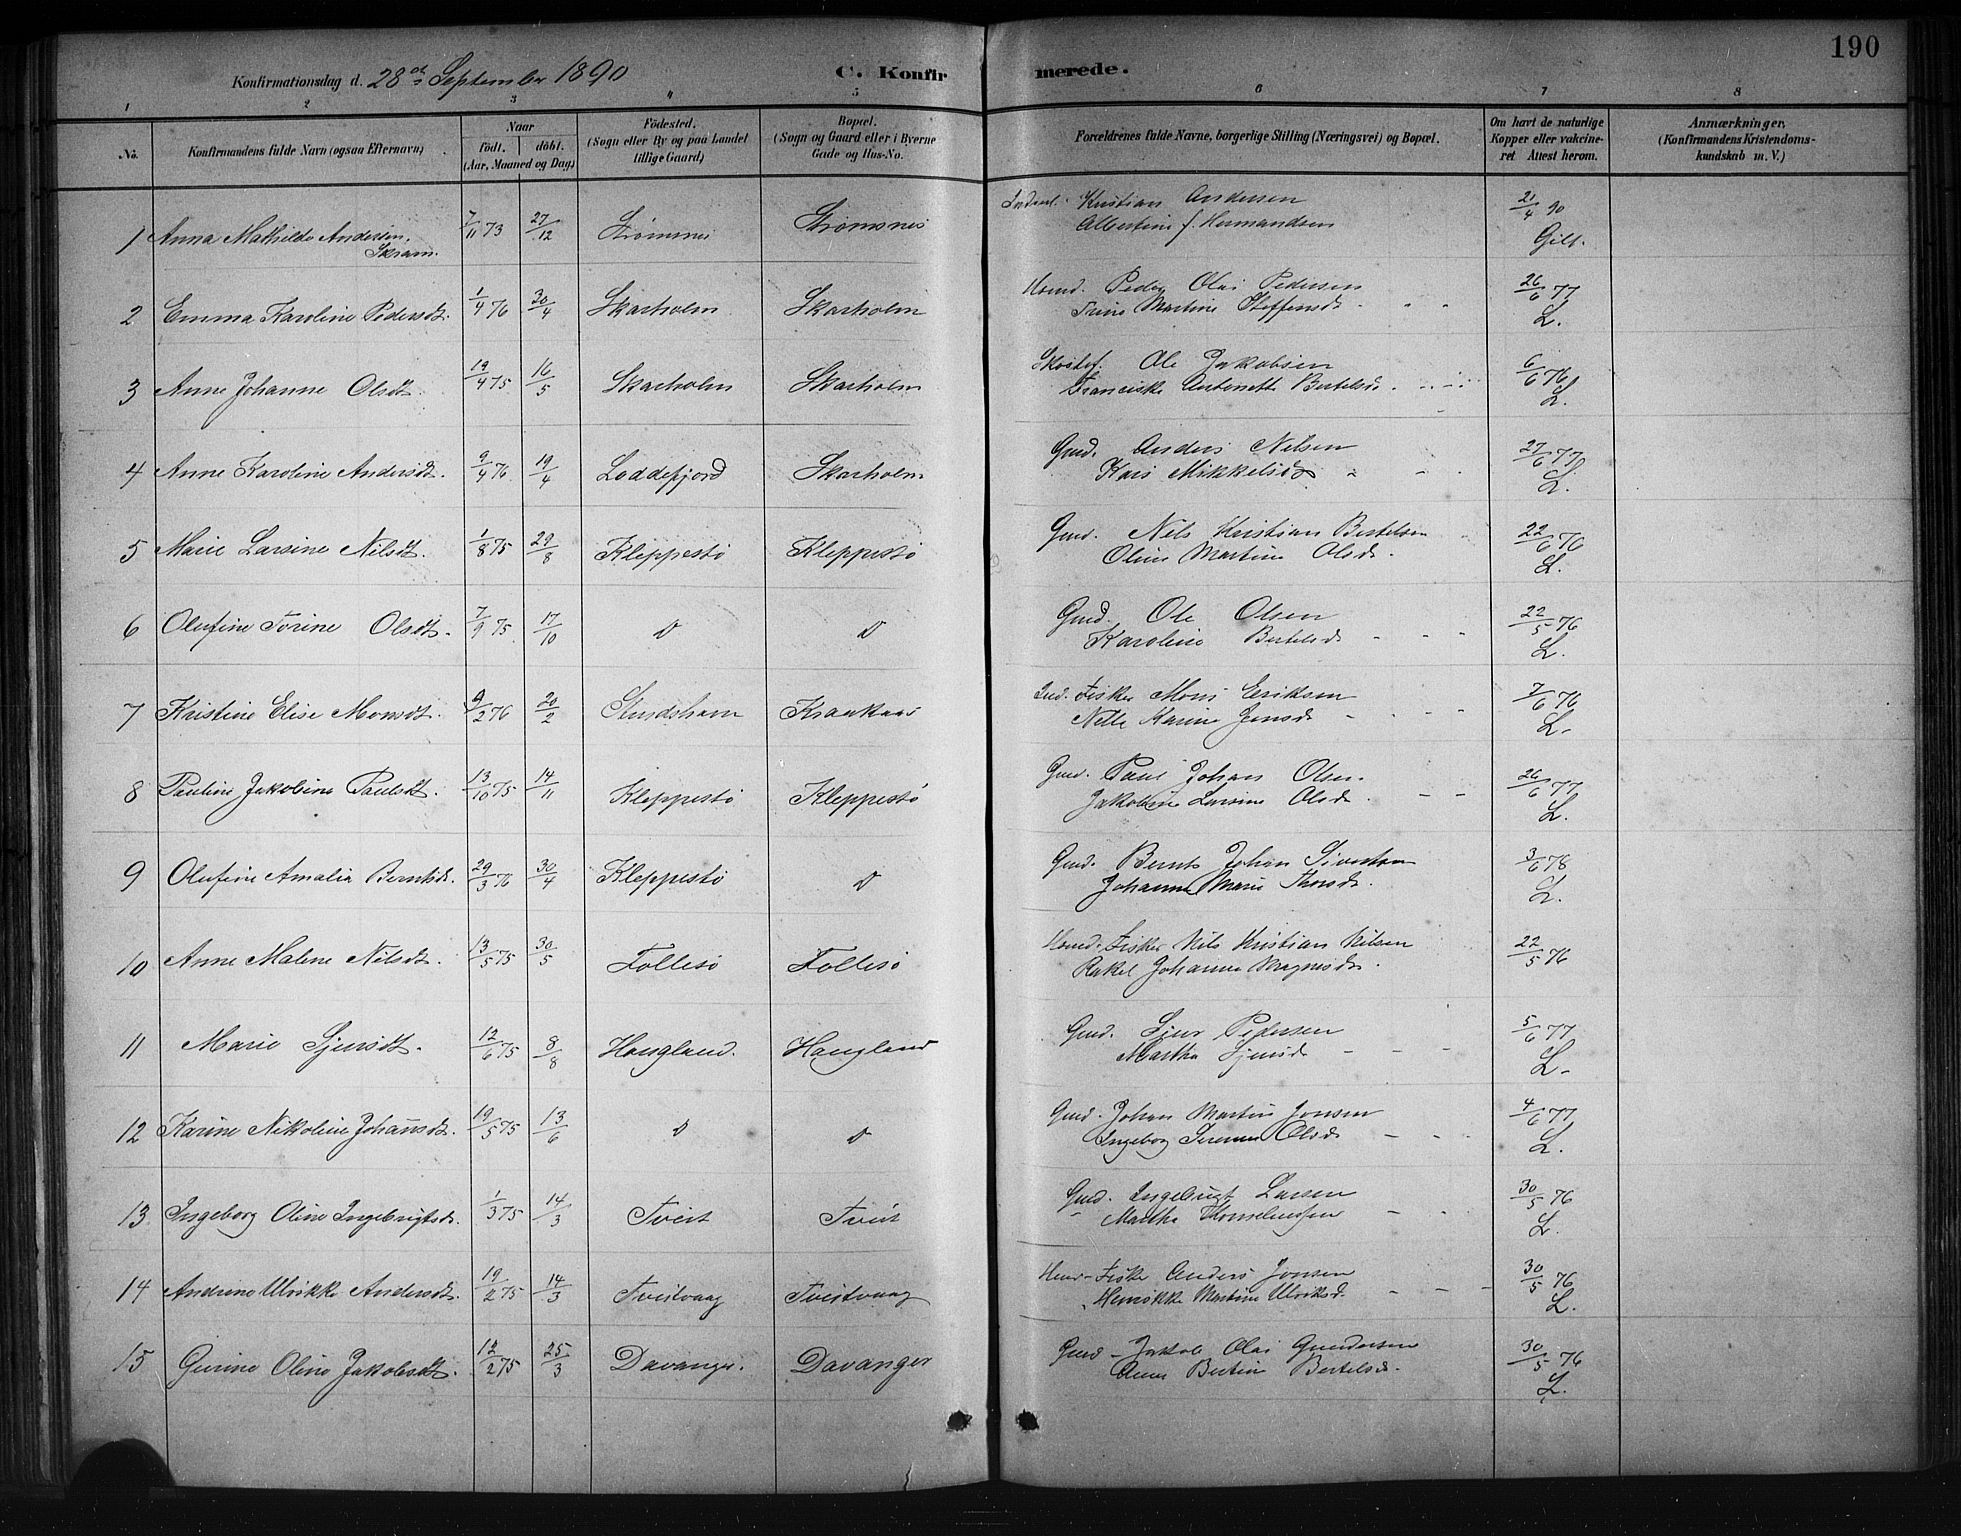 190
Konfirmationsdag d. 28de September 1890
C. Konfirmerede.
1 2 3 4 5 6 7 8
No. Konfirmandens fulde Navn (ogsaa Efternavn) Naar født. døbt. (Aar, Maaned og Dag) Fødested. (Sogn eller By og paa Landet tillige Gaard) Bopæl. (Sogn og Gaard eller i Byerne Gade og Hus-No. Forældrenes fulde Navne, borgerlige Stilling (Næringsvei) og Bopæl. Om havt de naturlige Kopper eller vakcineret Attest herom. Anmærkninger, (Konfirmandens Kristendomskundskab m. V.)
1 Anna Mathilde Andersen, Skram. 7/11 73 27/12 Strømsnes Strømsnes Kristian Andersen 21/4 90
Albertine f. Hermandsen Gilt.
2 Emma Karoline Pedersdt. 1/4 76 30/4 Skarholm Skarholm Hmd. Peder Olai Pedersen 26/6 77
Trine Martine Steffensd. " " L.
3 Anne Johanne Olsdt. 19/4 75 16/5 Skarholm Skarholm Ole Jakobsen 6/6 76
Franciske Antonette Bertelsd. L.
4 Anne Karoline Andersdt. 9/4 76 19/4 Loddefjord Skarholm Gmd. Anders Nilsen 27/6 77
Kari Mikkelsd. L.
5 Marie Larsine Nilsdt. 1/8 75 29/8 Kleppestø Kleppestø Gmd. Nils Kristian Bertelsen 22/6 76
Oline Martine Olsd. L.
6 Olufine Torine Olsdt. 7/9 75 17/10 do do Gmd. Ole Olsen 22/5 76
Karoline Bertelsd. L.
7 Kristine Elise Monsdt. 9/2 76 20/2 Kraakaas Fisker Mons Eriksen 7/6 76
Karine Jensd. L.
8 Pauline Jakobine Paulsdt. 13/10 75 14/11 Kleppestø Kleppestø Gmd. Paul Johan Olsen 26/6 77
Jakobine Larsine Olsd. L.
9 Olufine Amalia Berntsd. 29/3 76 30/4 Kleppestø do Gmd. Bernt Johan Sivertsen 3/6 78
Johanna Marie Thorsd. L.
10 Anne Malene Nilsdt. 13/5 75 30/5 Follesø Follesø Hmd. Fisker Nils Kristian Nilsen 22/5 76
Rakel Johanne Magnusd.
11 Marie Sjursdt. 12/6 75 8/8 Haugland. Haugland Gmd. Sjur Pedersen 5/6 77
Martha Sjursd. L.
12 Karine Nikoline Johansdt. 19/5 75 13/6 do do Gmd. Johan Martin Jonsen 4/6 77
Ingeborg Serenna Olsd. L.
13 Ingeborg Oline Ingebrigtsd. 1/3 75 14/3 Tveit Tveit Gmd. Ingebrigt Larsen 30/5 76
Martha L.
14 Andrine Ulrikke Andersdt. 19/2 75 14/3 Tveitvaag Tveitvaag Fisker Anders Jonsen 30/5 76
Henrikke Martine Ulriksd. L.
15 Gurine Oline Jakobsdt. 12/2 75 25/3 Davanger. Davanger Gmd. Jakob Olai Gundersen 30/5 76
Anne Bertine Bertelsd. L.